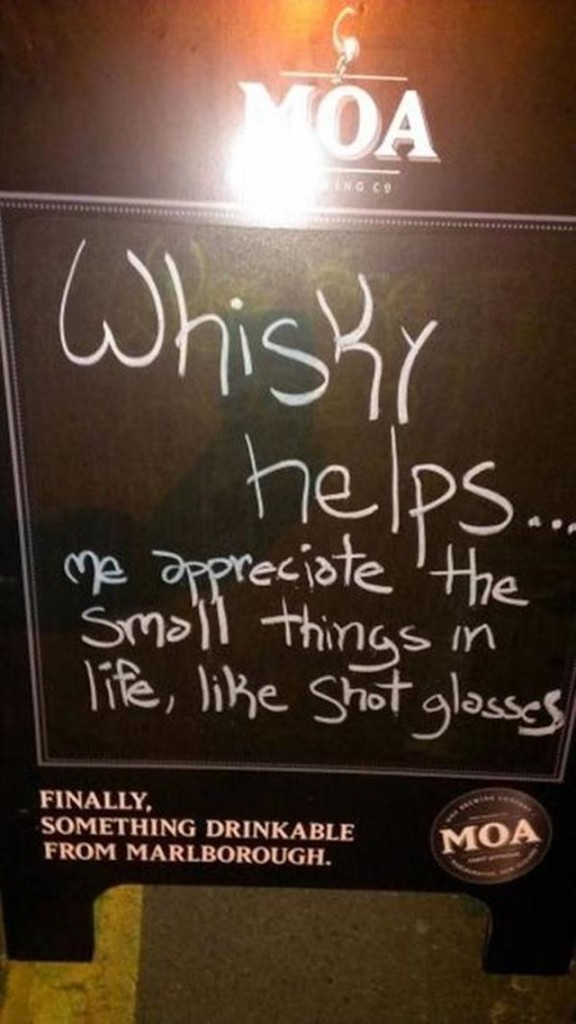 MOA
ING CO
Whisky
helps...
me appreciate the
small things in
life, like shot glasses
FINALLY,
SOMETHING DRINKABLE
FROM MARLBOROUGH.
MOA